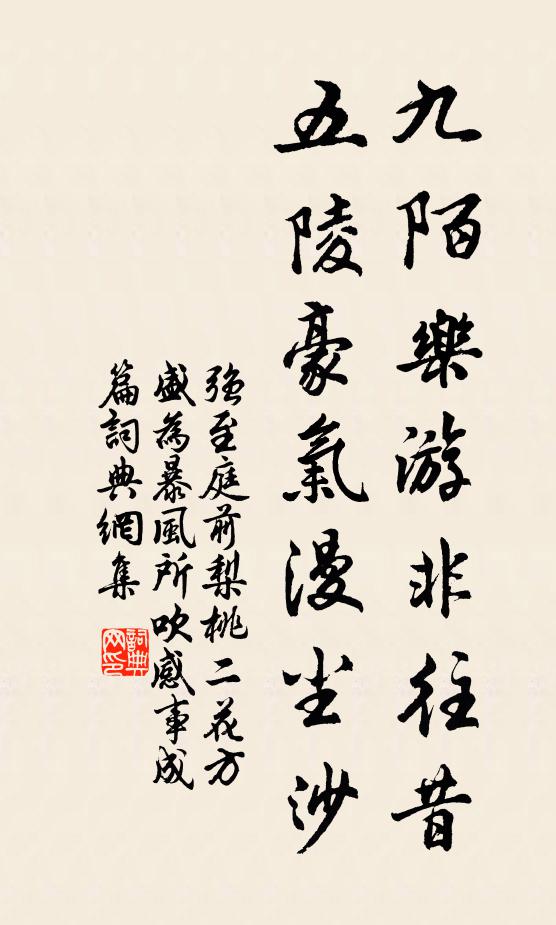 九陌樂游非往昔
五陵豪氣漫尘沙
強至庭前梨桃二花方
盛為暴風所吹感事成
篇詞典網集
詞典网印